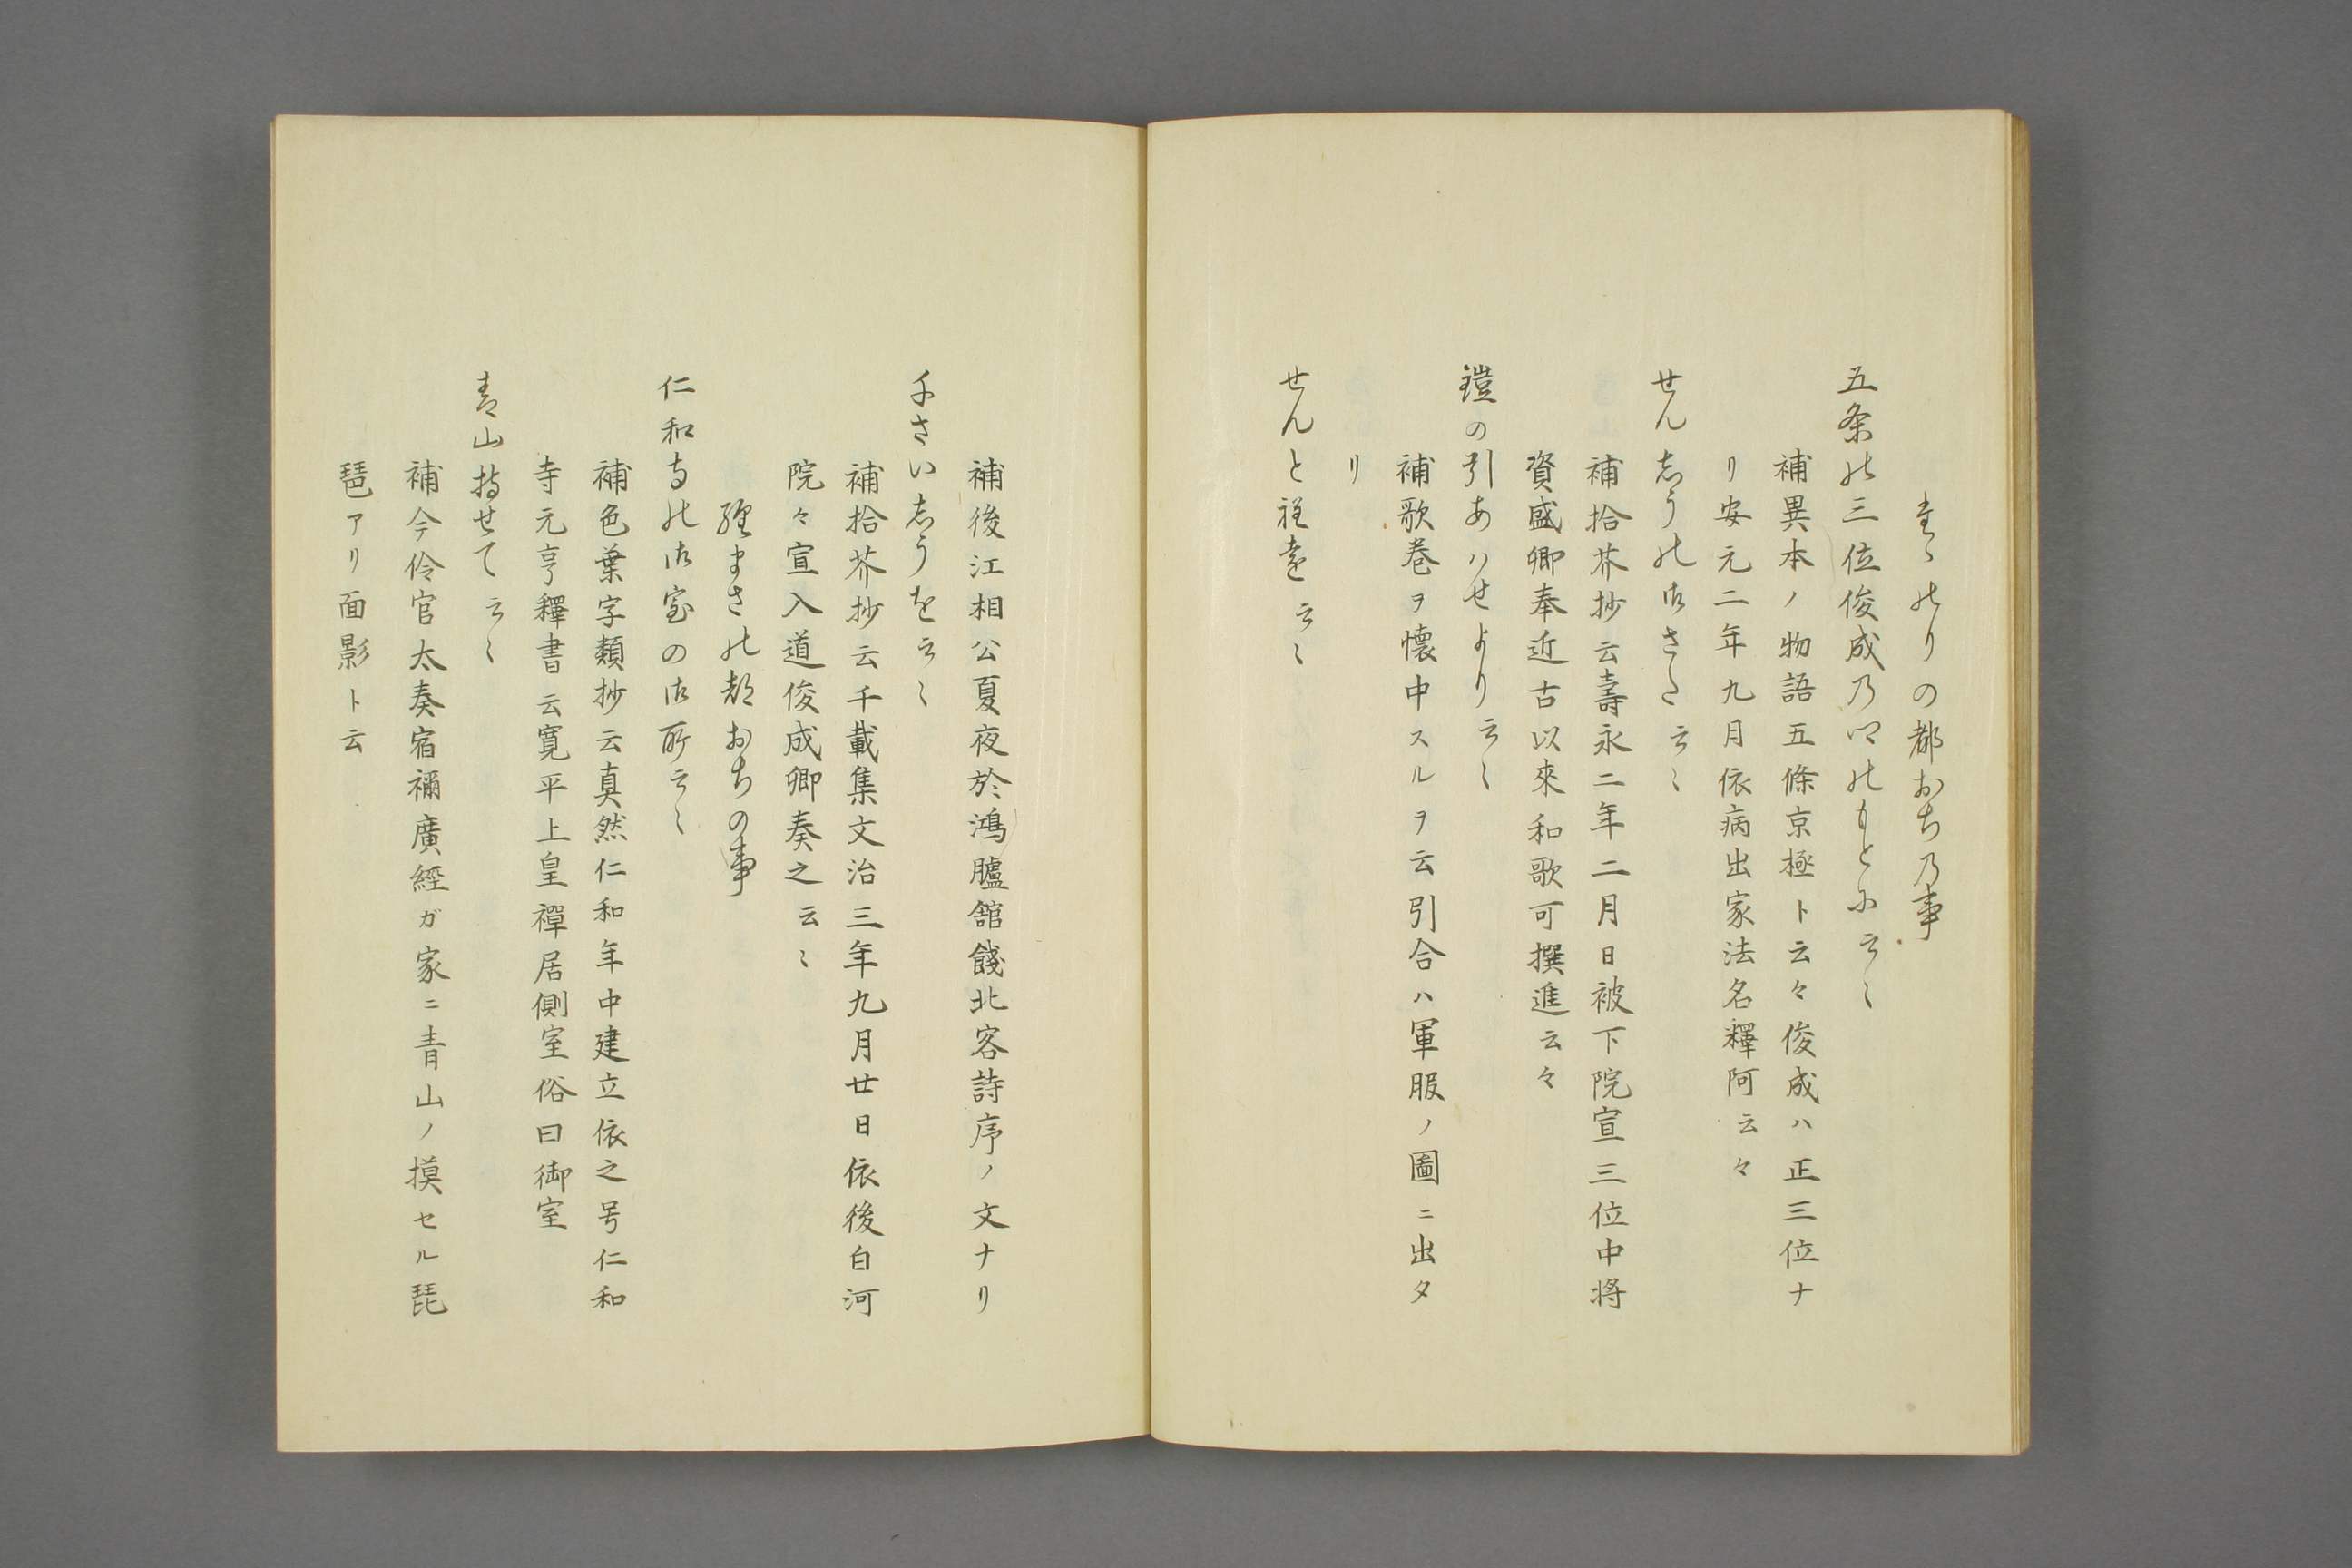 たゝのりの都おち乃事
五条の三位俊成乃卿のもとに云〻
補異本ノ物語五條京極ト云々俊成ハ正三位ナ
リ安元二年九月依病出家法名釋阿云々
せんしうの御さた云〻
補拾芥抄云壽永二年二月日被下院宣三位中将
資盛卿奉近古以來和歌可撰進云々
鎧の引あハせより云〻
補歌巻ヲ懐中スルヲ云引合ハ軍服ノ圖ニ出タ
リ
せんと程遠云〻
補後江相公夏夜於鴻臚舘餞北客詩序ノ文ナリ
千さいしうを云〻
補拾芥抄云千載集文治三年九月廿日依後白河
院々宣入道俊成卿奏之云〻
経まさの都おちの事
仁和寺の御室の御所云〻
補色葉字類抄云真然仁和年中建立依之号仁和
寺元亨釋書云寛平上皇禪居側室俗曰御室
青山持せて云〻
補今伶官太奏宿禰廣經ガ家ニ青山ノ摸セル琵
琶アリ面影ト云